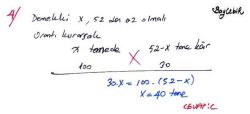 4/ Demekki x, 52 den az olmalı
Orantı kurarsak
x tanede 52-x tane kâr
100 30
30.x = 100.(52-x)
x = 40 tane
CEVAP: C